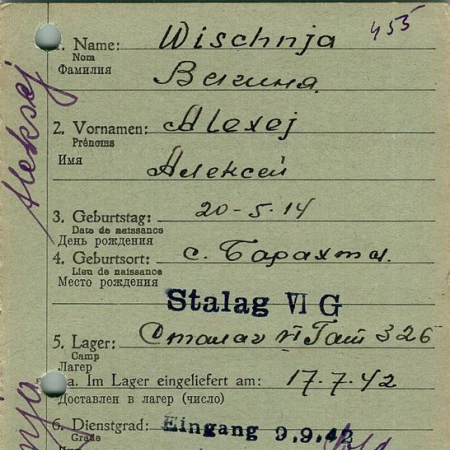 455
1. Name: Wischnja
Nom
Фамилия
Вагиня
2. Vornamen: Alexej
Prénoms
Имя
Алексей
3. Geburtstag: 20-5-14
Date de naissance
День рождения
4. Geburtsort: с. Барахты.
Lieu de naissance
Место рождения
Stalag VI G
5. Lager: Сталаг 326
Camp
Лагер
a. Im Lager eingeliefert am: 17.7.42
Доставлен в лагер (число)
6. Dienstgrad: Eingang 9.9.42
Grade
Aleksej